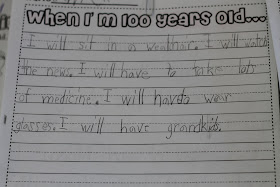 When I'm 100 years old...
I will sit in a weelhar. I will watch
the news. I will have to take lots
of medicine. I will havto wear
glasses. I will have grandkids.